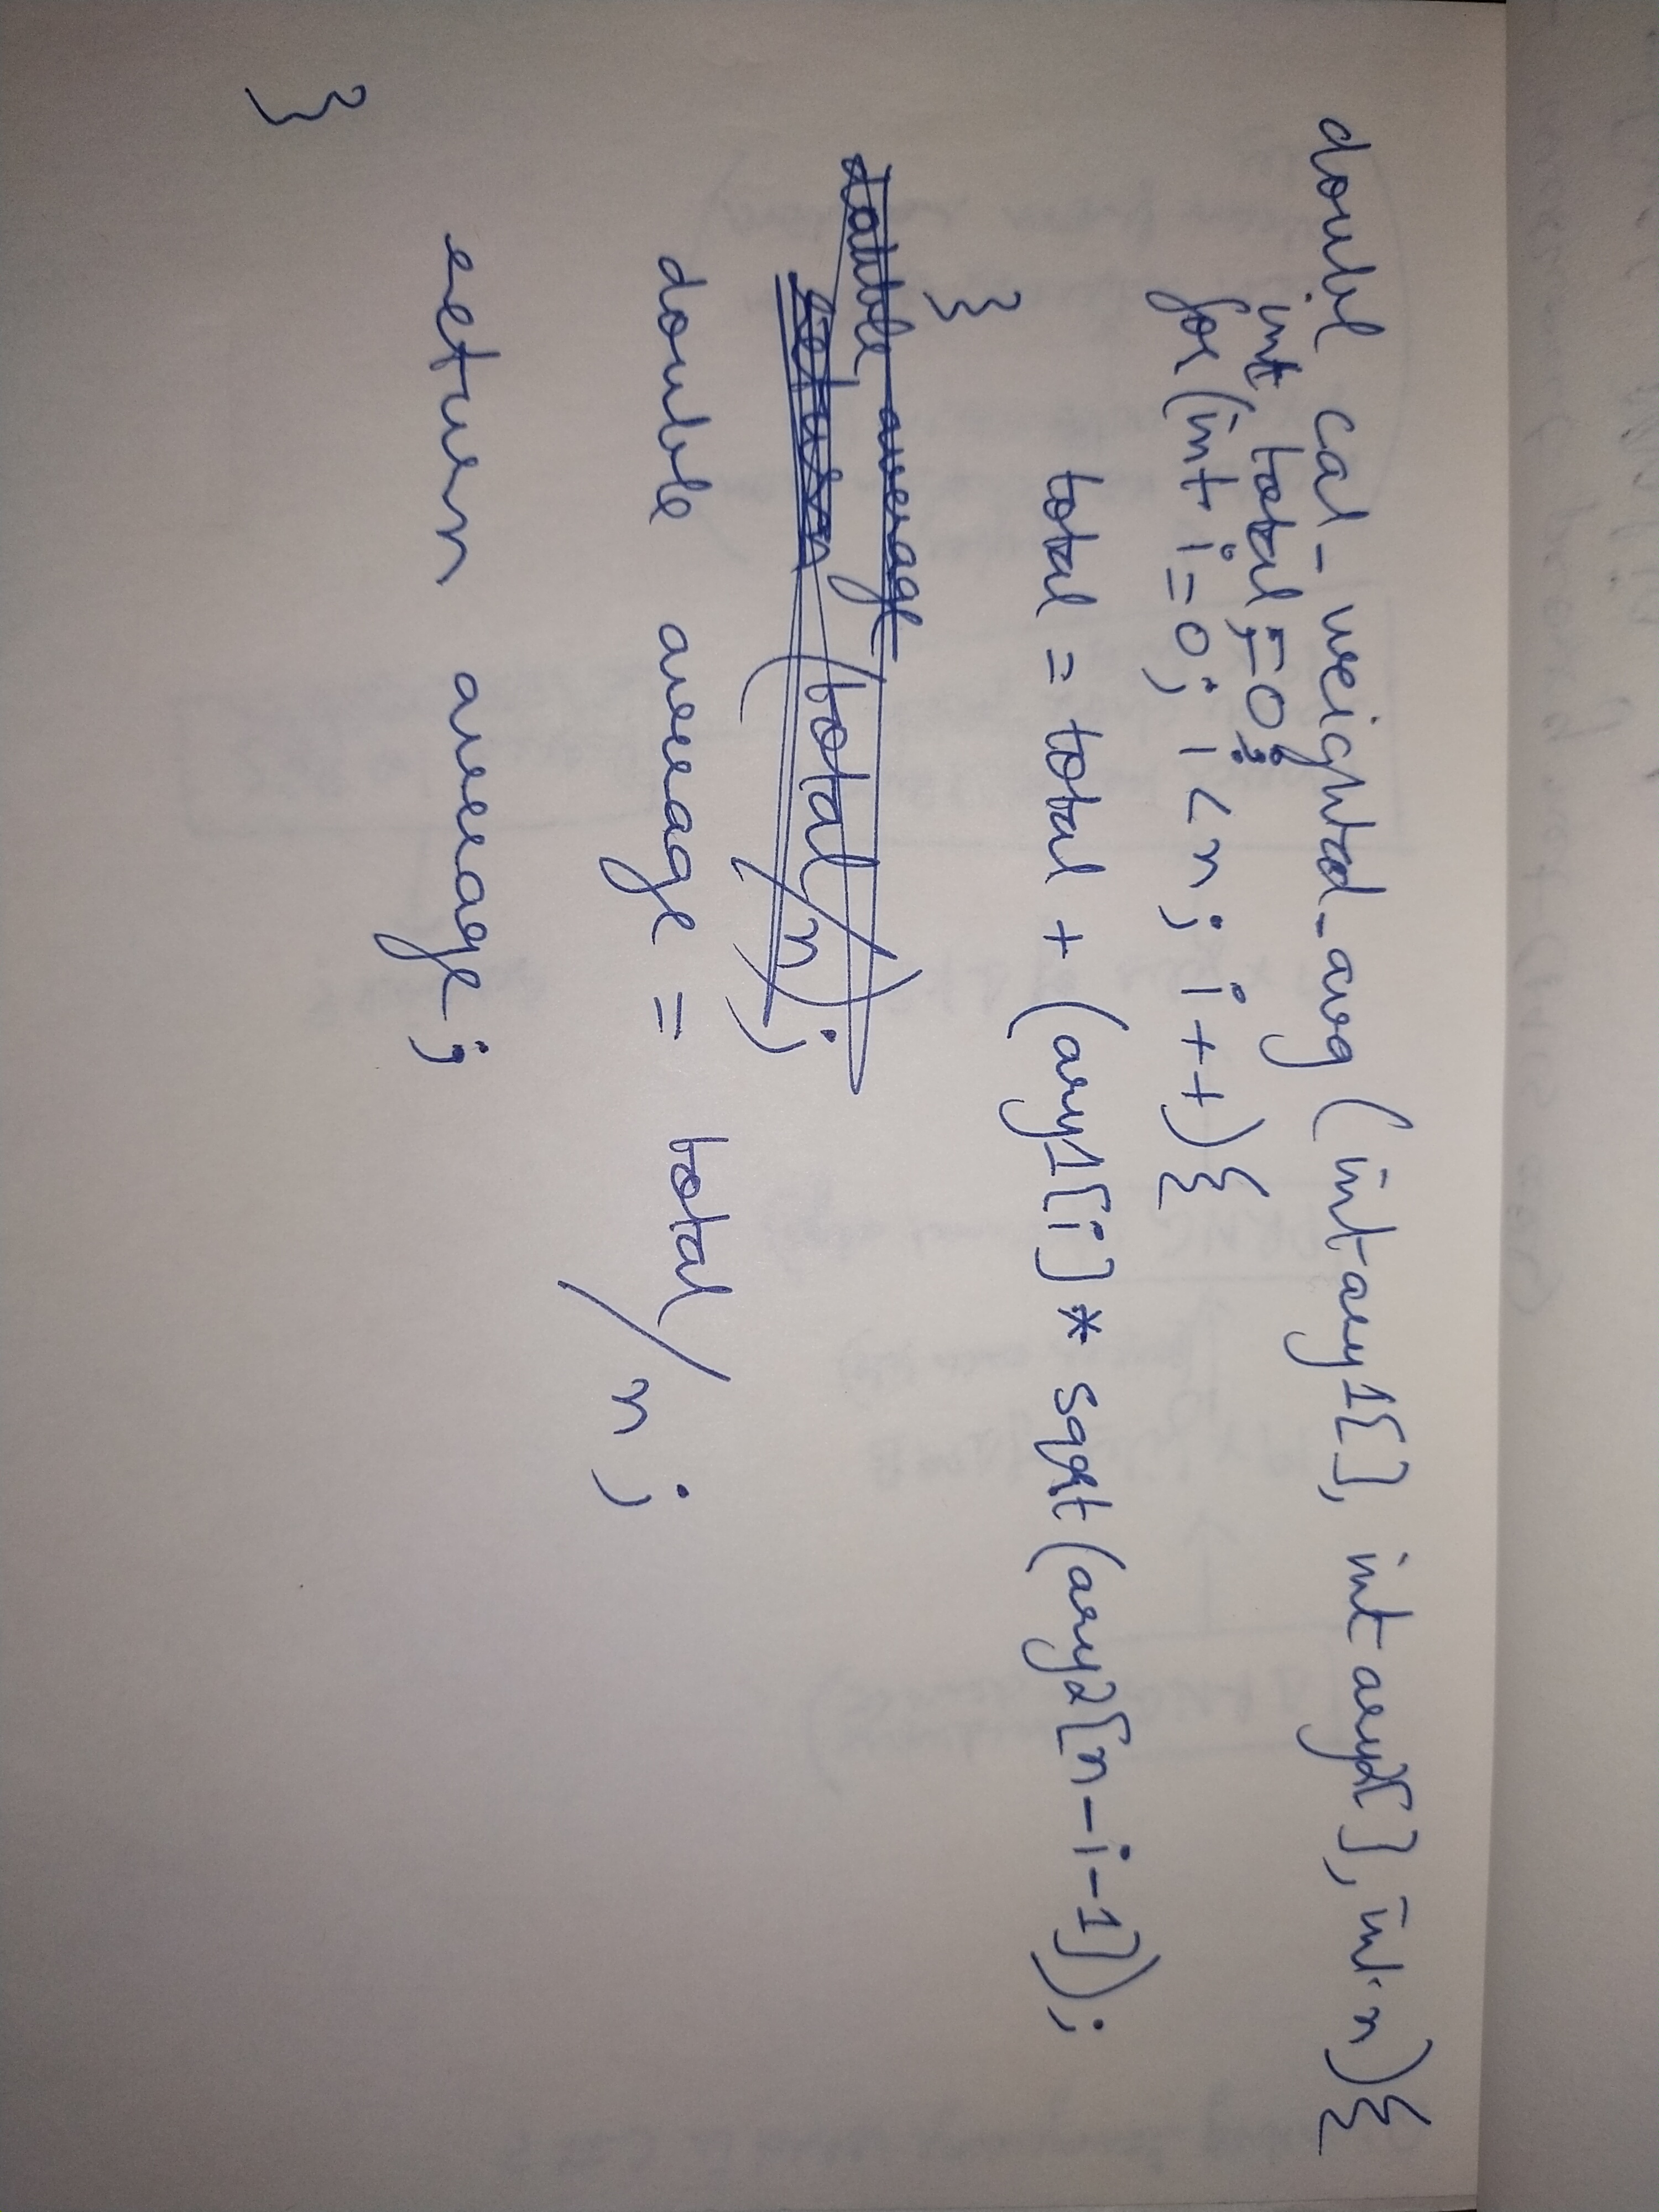 double cal_weighted_avg (int arry1[], int arry2[], int n){
int total = 0;
for (int i = 0; i < n; i++){
total = total + (arry1[i] * sqrt (arry2[n-i-1]);
}
double average
return (total/n);
double average = total/n;
return average;
}